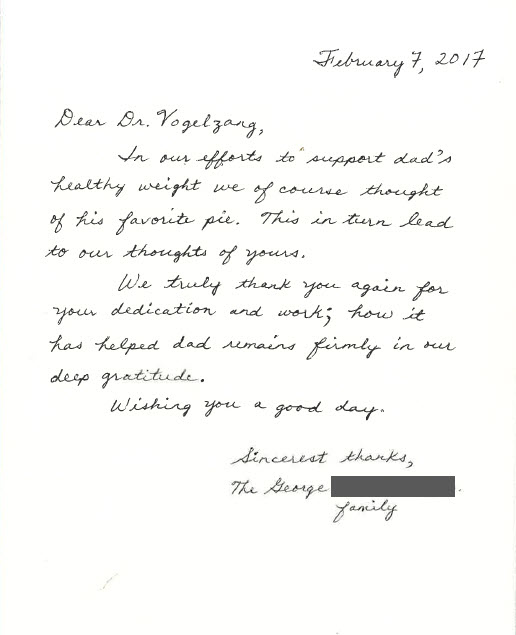 February 7, 2017
Dear Dr. Vogelzang,
In our efforts to support dad's
healthy weight we of course thought
of his favorite pie. This in turn lead
to our thoughts of yours.
We truly thank you again for
your dedication and work; how it
has helped dad remains firmly in our
deep gratitude.
Wishing you a good day.
Sincerest thanks,
The George
family